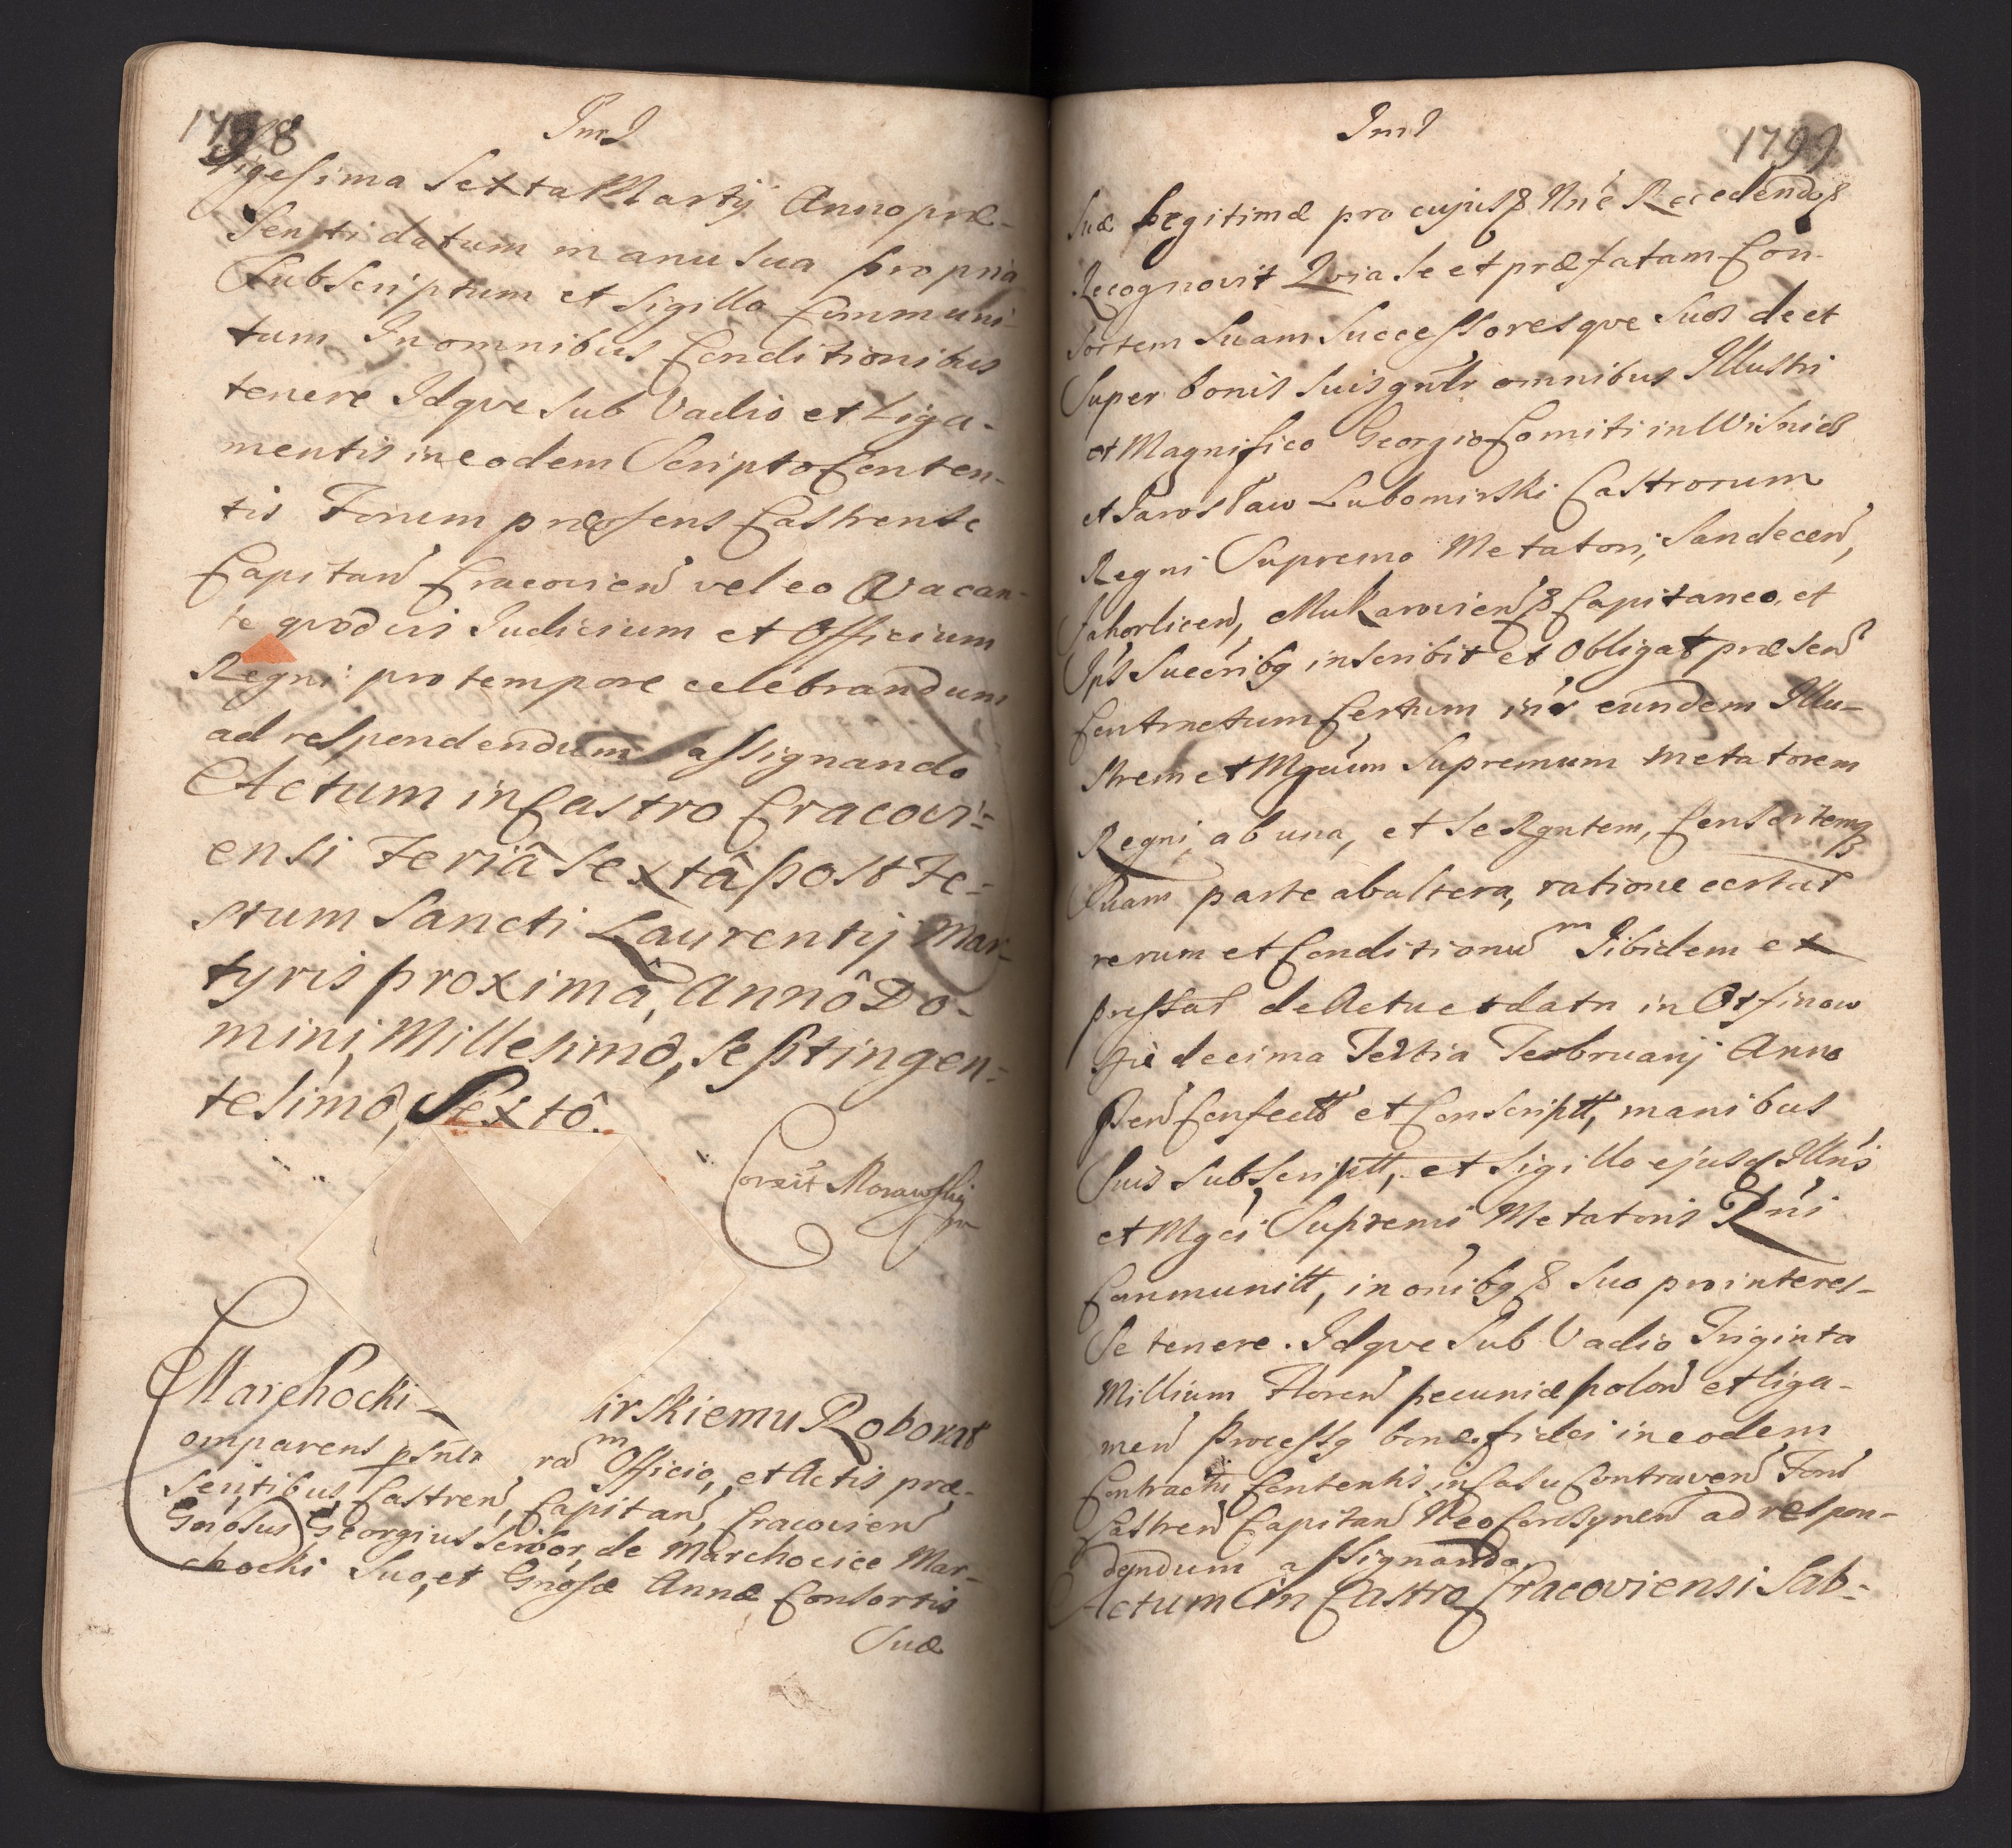 1798
Im I
Vigesima Sexta Martij Anno præ-
senti datum manu sua propria
Subscriptum et Sigillo Communi-
tum In omnibus Conditionibus
tenere Idqve sub Vadio et Liga-
mentis in eodem Scripto Conten-
tis Forum præsens Castrense
Capitan Cracovien vel eo Vacan-
te qvodvis Iudicium et Officium
Regni pro tempore celebrandum
ad respondendum assignando
Actum in Castro Cracovi=
ensi Feriâ Sextâ post Fe=
stum Sancti Laurentij Mar=
tyris proximâ, Annô Do-
mini, Millesimô, Septingen=
tesimô, Sextô.
Corexit Morawski
Marchocki irskiemu Roborat
omparens psnlr Officio, et Actis præ-
sentibus Castren, Capitan, Cracovien
Gnosus Georgius Senior, de Marchocice Mar-
chocki Suo, et Gnosæ Annæ Consortis
Suæ
Im I
1799
Suæ Legitimæ pro cujus Nne Recedendo
Recognovit Qvia Se et præfatam Con-
sortem Suam Successoresqve Suos de et
Super bonis Suis gnlr omnibus Illustri
et Magnifico Georgio Comiti in Wisnicz
et Jarosław Lubomirski Castrorum
Regni Supremo Metatori, Sandecen,
Jahorlicen, Mukarovien Capitaneo, et
Ips Succribq inscribit et Obligat præsen
Contractum Certum inr eundem Illu-
strem et Mgcum Supremum metatorem
Regni, ab una, et Se Rgntem, Consortemq
Suam parte ab altera, ratione certar
rerum et Conditionum Iibidem ex
pressar de Actu et datu in Otfinow
die decima Tertia Februarij Anno
Psen Confectt et Conscriptt, manibus
Suis Subscriptt, et Sigillo ejusd Illris
et Mgci Supremi Metatoris Rni
Communitt, in omibq Suo pro interes-
se tenere. Idqve Sub Vadio Triginta
Millium Floren pecuniæ polon et liga-
men Processq bonæ fidei in eodem
Contractu Contentis in Casu Contraven Foru
Castren Capitan Neo Corczynen ad respon-
dendum assignando
Actum in Castro Cracoviensi Sab=